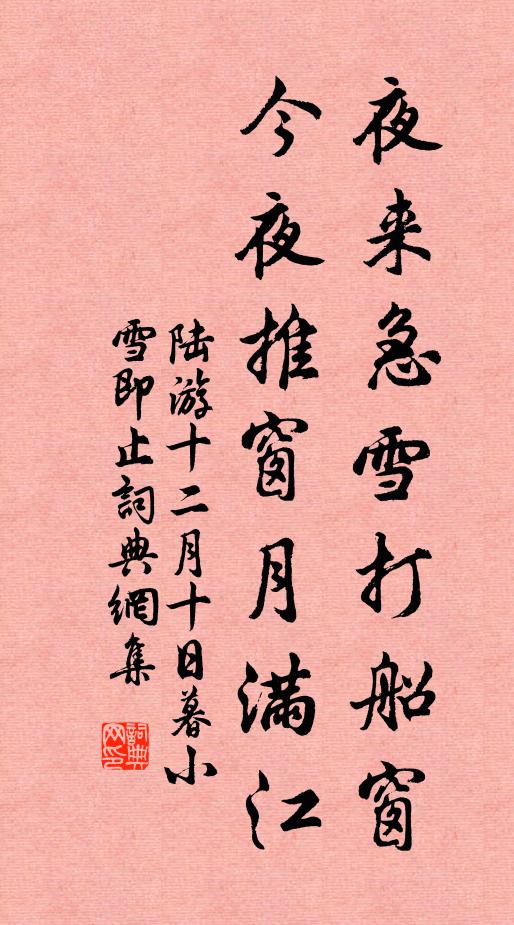 夜来急雪打船窗
今夜推窗月满江
陆游十二月十日暮小
雪即止詞典網集
詞典網印